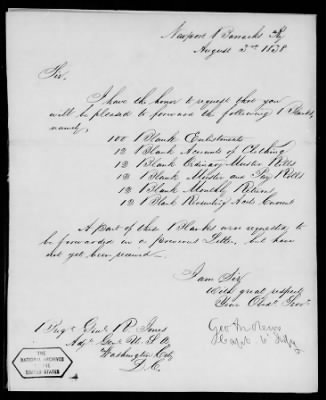 Newport Barracks Ky
August 3rd 1838
Sir.
I have the honor to request that you
will be pleased to forward the following Blanks,
namely,
100 Blank Enlistments
12 Blank Accounts of Clothing
12 Blank Ordinary Muster Rolls
12 Blank Muster and Pay Rolls
12 Blank Monthly Return
12 Blank Recruiting Accts Current
A part of these Blanks were requested to
be forwarded in a previous Letter, but have
not yet been received
I am Sir
With great respect
Your Obdt. Servt.
Brigr. Genl. R Jones
Adjt. Genl. U. S. A.
Washington City
D. C.
Geo
Capt. 6 Infy
THE
NATIONAL ARCHIVES
OF THE
UNITED STATES